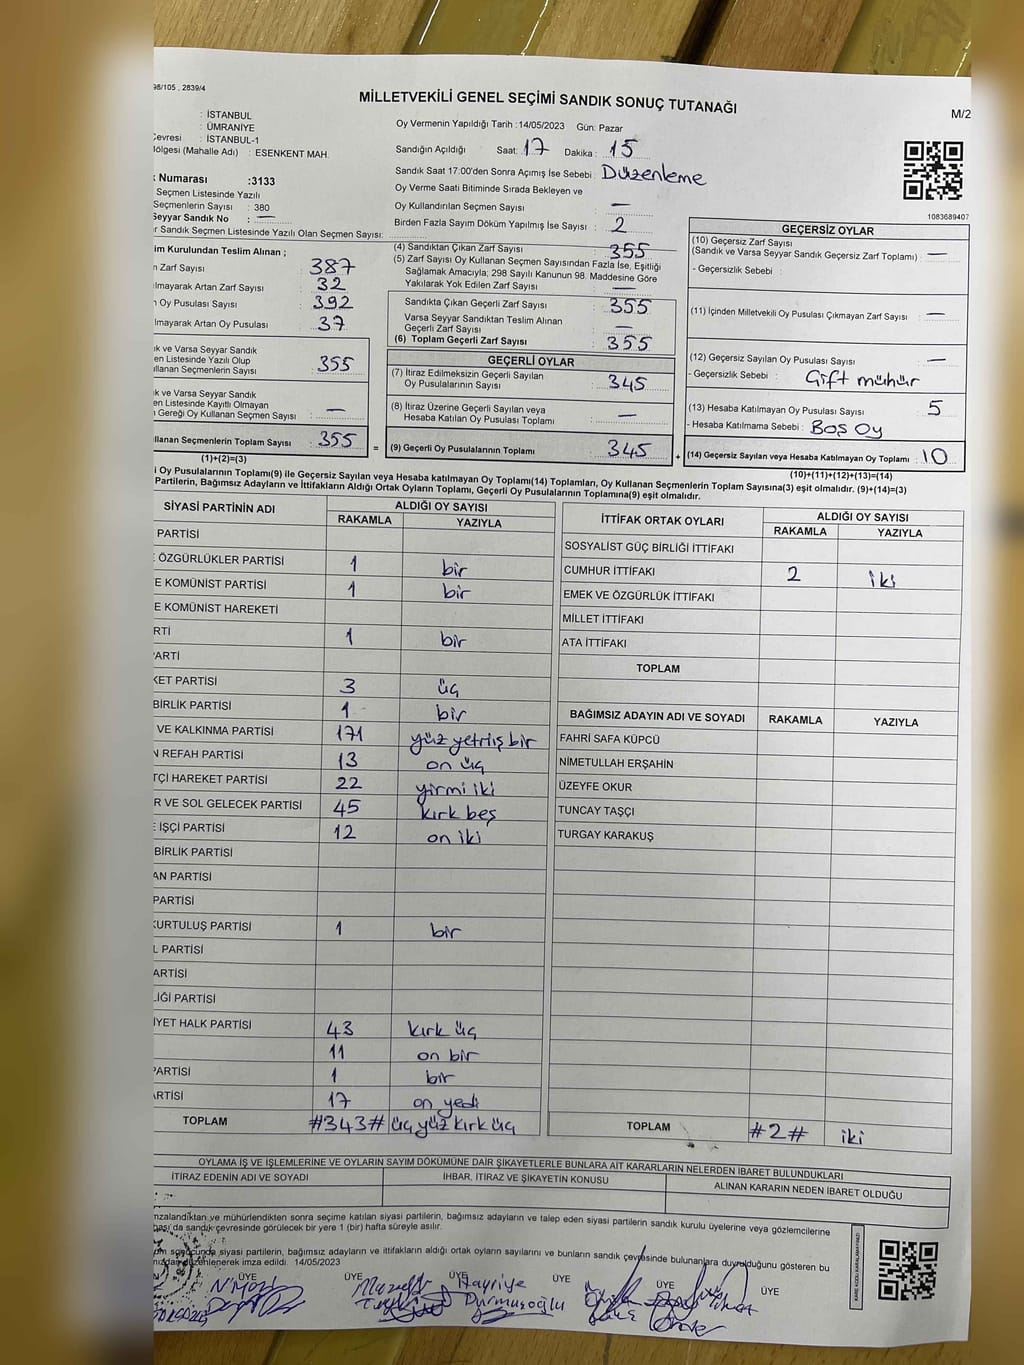 98/105 , 2839/4
MİLLETVEKİLİ GENEL SEÇİMİ SANDIK SONUÇ TUTANAĞI
M/2
: İSTANBUL
: ÜMRANİYE
Çevresi : İSTANBUL-1
Bölgesi (Mahalle Adı) : ESENKENT MAH.
Oy Vermenin Yapıldığı Tarih :14/05/2023 Gün: Pazar
Sandığın Açıldığı Saat: 17 Dakika : 15
Sandık Saat 17:00'den Sonra Açımış İse Sebebi : Düzenleme
Oy Verme Saati Bitiminde Sırada Bekleyen ve
Oy Kullandırılan Seçmen Sayısı : —
Birden Fazla Sayım Döküm Yapılmış İse Sayısı : 2
k Numarası :3133
Seçmen Listesinde Yazılı
Seçmenlerin Sayısı : 380
Seyyar Sandık No : —
r Sandık Seçmen Listesinde Yazılı Olan Seçmen Sayısı:
1083689407
im Kurulundan Teslim Alınan ;
n Zarf Sayısı : 387
lmayarak Artan Zarf Sayısı : 32
n Oy Pusulası Sayısı : 392
lmayarak Artan Oy Pusulası : 37
ık ve Varsa Seyyar Sandık
en Listesinde Yazılı Olup
ullanan Seçmenlerin Sayısı : 355
ık ve Varsa Seyyar Sandık
en Listesinde Kayıtlı Olmayan
ı Gereği Oy Kullanan Seçmen Sayısı : —
llanan Seçmenlerin Toplam Sayısı : 355 =
(1)+(2)=(3)
(4) Sandıktan Çıkan Zarf Sayısı : 355
(5) Zarf Sayısı Oy Kullanan Seçmen Sayısından Fazla İse, Eşitliği
Sağlamak Amacıyla; 298 Sayılı Kanunun 98. Maddesine Göre
Yakılarak Yok Edilen Zarf Sayısı : —
Sandıkta Çıkan Geçerli Zarf Sayısı : 355
Varsa Seyyar Sandıktan Teslim Alınan
Geçerli Zarf Sayısı : —
(6) Toplam Geçerli Zarf Sayısı : 355
GEÇERLİ OYLAR
(7) İtiraz Edilmeksizin Geçerli Sayılan
Oy Pusulalarının Sayısı : 345
(8) İtiraz Üzerine Geçerli Sayılan veya
Hesaba Katılan Oy Pusulası Toplamı : —
(9) Geçerli Oy Pusulalarının Toplamı : 345 +
GEÇERSİZ OYLAR
(10) Geçersiz Zarf Sayısı
(Sandık ve Varsa Seyyar Sandık Geçersiz Zarf Toplamı) : —
- Geçersizlik Sebebi :
(11) İçinden Milletvekili Oy Pusulası Çıkmayan Zarf Sayısı : —
(12) Geçersiz Sayılan Oy Pusulası Sayısı : —
- Geçersizlik Sebebi : Çift mühür
(13) Hesaba Katılmayan Oy Pusulası Sayısı : 5
- Hesaba Katılmama Sebebi : Boş Oy
(14) Geçersiz Sayılan veya Hesaba Katılmayan Oy Pusulası Toplamı : 10
(10)+(11)+(12)+(13)=(14)
i Oy Pusulalarının Toplamı(9) ile Geçersiz Sayılan veya Hesaba katılmayan Oy Pusulası Toplamı(14) Toplamları, Oy Kullanan Seçmenlerin Toplam Sayısına(3) eşit olmalıdır. (9)+(14)=(3)
Partilerin, Bağımsız Adayların ve İttifakların Aldığı Ortak Oyların Toplamı, Geçerli Oy Pusulalarının Toplamına(9) eşit olmalıdır.
SİYASİ PARTİNİN ADI ALDIĞI OY SAYISI
RAKAMLA YAZIYLA
PARTİSİ
E ÖZGÜRLÜKLER PARTİSİ 1 bir
E KOMÜNİST PARTİSİ 1 bir
E KOMÜNİST HAREKETİ
RTİ 1 bir
PARTİ
KET PARTİSİ 3 üç
BİRLİK PARTİSİ 1 bir
VE KALKINMA PARTİSİ 171 yüz yetmiş bir
N REFAH PARTİSİ 13 on üç
TÇİ HAREKET PARTİSİ 22 yirmi iki
R VE SOL GELECEK PARTİSİ 45 kırk beş
E İŞÇİ PARTİSİ 12 on iki
BİRLİK PARTİSİ
AN PARTİSİ
PARTİSİ
KURTULUŞ PARTİSİ 1 bir
L PARTİSİ
ARTİSİ
LİĞİ PARTİSİ
İYET HALK PARTİSİ 43 kırk üç
11 on bir
PARTİSİ 1 bir
ARTİSİ 17 on yedi
TOPLAM #343# üç yüz kırk üç
İTTİFAK ORTAK OYLARI ALDIĞI OY SAYISI
RAKAMLA YAZIYLA
SOSYALİST GÜÇ BİRLİĞİ İTTİFAKI
CUMHUR İTTİFAKI 2 iki
EMEK VE ÖZGÜRLÜK İTTİFAKI
MİLLET İTTİFAKI
ATA İTTİFAKI
TOPLAM
BAĞIMSIZ ADAYIN ADI VE SOYADI RAKAMLA YAZIYLA
FAHRİ SAFA KÜPCÜ
NİMETULLAH ERŞAHİN
ÜZEYFE OKUR
TUNCAY TAŞÇI
TURGAY KARAKUŞ
TOPLAM #2# iki
OYLAMA İŞ VE İŞLEMLERİNE VE OYLARIN SAYIM DÖKÜMÜNE DAİR ŞİKAYETLERLE BUNLARA AİT KARARLARIN NELERDEN İBARET BULUNDUKLARI
İTİRAZ EDENİN ADI VE SOYADI İHBAR, İTİRAZ VE ŞİKAYETİN KONUSU ALINAN KARARIN NEDEN İBARET OLDUĞU
mzalandıktan ve mühürlendikten sonra seçime katılan siyasi partilerin, bağımsız adayların ve talep eden siyasi partilerin sandık kurulu üyelerine veya gözlemcilerine
bası da sandık çevresinde görülecek bir yere 1 (bir) hafta süreyle asılır.
ım sonucunda siyasi partilerin, bağımsız adayların ve ittifakların aldığı ortak oyların sayılarını ve bunların sandık çevresinde bulunanlara duyrulduğunu gösteren bu
düzenlenerek imza edildi. 14/05/2023
ÜYE ÜYE ÜYE ÜYE ÜYE ÜYE
Hayriye
Durmuşoğlu